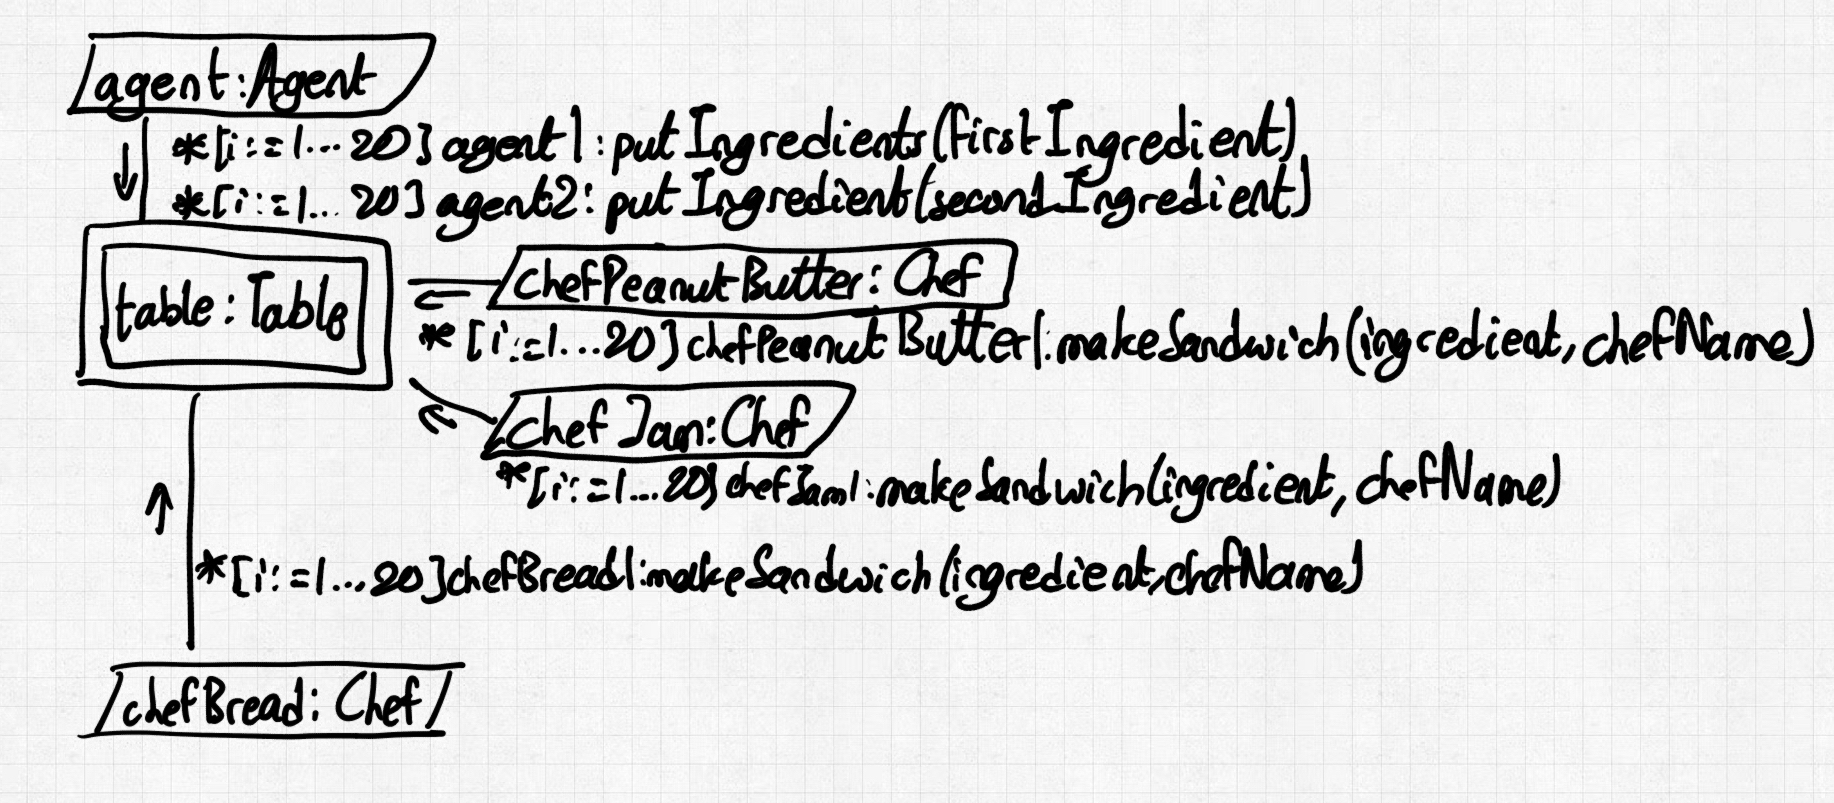 agent:Agent
*[i:=1...20] agent1:putIngredients(firstIngredient)
*[i:=1...20] agent2:putIngredient(secondIngredient)
chefPeanutButter:Chef
table:Table
*[i:=1...20]chefPeanutButter1:makeSandwich(ingredient,chefName)
chefJam:Chef
*[i:=1...20]chefJam1:makeSandwich(ingredient,chefName)
*[i:=1...20]chefBread1:makeSandwich(ingredient,chefName)
chefBread:Chef